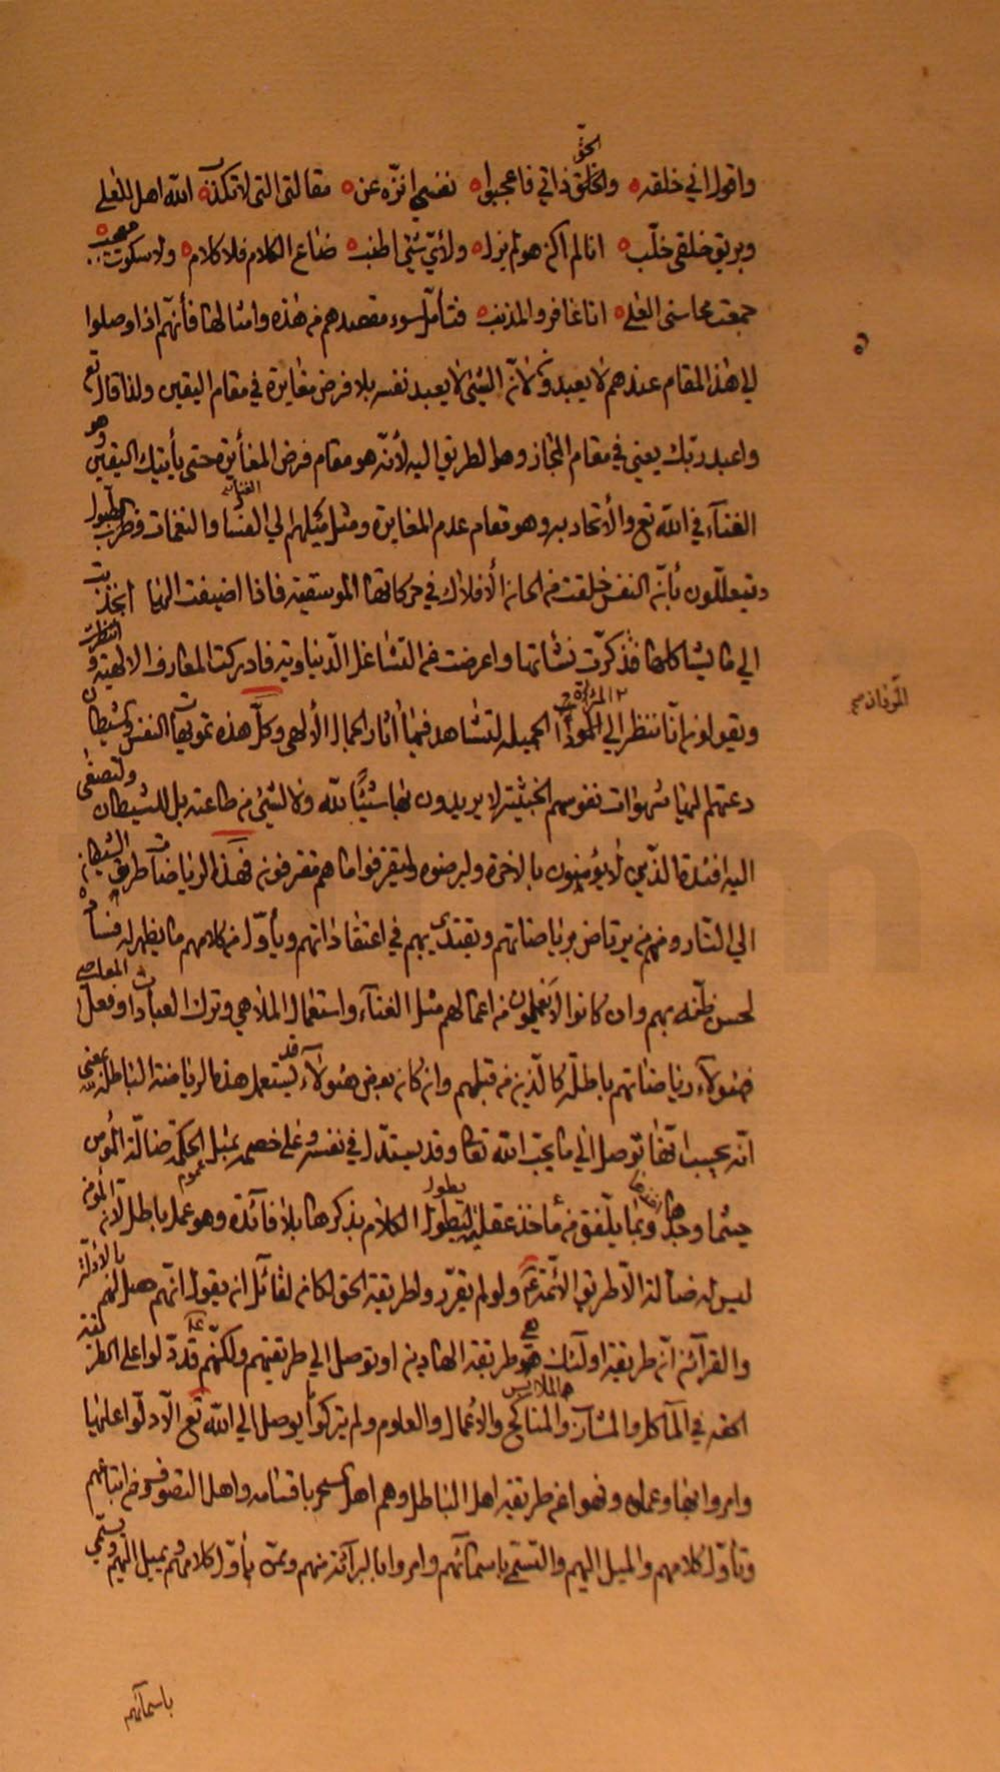 الحق
واقول اني خلقه ه والخلق ذاتي فاعجبوا ه نفسي انزّه عن ه مقالتي التي لا تكذب ه الله اهل للعلى
وبريق خلقي خلّب ه انا لم اكن هو لم يزل ه ولأيّ شيئ اطنب ه ضاع الكلام فلا كلام ه ولا سكوت معجب ه
جمعت محاسني العلى ه انا غافر والمذنب ه فتأمّل سوء مقصدهم من هذه وامثالها فأنهم اذا وصلوا
الي هذا المقام عندهم لا يعبدون لأنّ الشيئ لا يعبد نفسه بلا فرض مغايرة في مقام اليقين ولذا قال تع
واعبد ربّك يعني في مقام المجاز وهو الطريق اليه لأنّه هو مقام فرض المغايرة حتى يأتيك اليقين وهو
الفنآء في الله تع والأتحاد به وهو مقام عدم المغايرة ومثل ميلهم الي الغنا والنغمات وضرب الطبول
ويتعلّلون بأنّ النفس خلقت من الحان الأفلاك في حركاتها الموسيقية فاذا اضيفت اليها انجذبت
الي ما يشاكلها فذكرت نشأتها واعرضت عن التشاغل الدّنياوية فادركت المعارف الالهية و
ويقولون انّا ننظر الي الجميلة لنشاهد فيها آثار الجمال الألهي وكلّ هذه تمويهات النفس والشيطان
المردان صح
دعتهم اليها شهوات نفوسهم الخبيثة لا يريدون بها شيئًا لله ولا لشيئ من طاعته بل للشيطان ولتصغى
اليه افئدة الذين لا يؤمنون بالاخرة وليرضوه وليقترفوا ما هم مقترفون فهذه الرياضات طريق الشيطان
الي النار ومنهم من يرتاض برياضاتهم ويقتدي بهم في اعتقاداتهم ويأوّل من كلامهم ما يظهر له فساده
لحسن ظنّه بهم وان كانوا لا يفعلون من اعمالهم مثل الغنآء واستعمال الملاهي وترك العبادات وفعل المعاصي
فهؤلآء رياضاتهم باطلة كالّذين من قبلهم وان كان بعض هؤلآء قد يستعمل هذه الرياضة الباطلة يعني
انّه يحسب انّها توصل الي ما يحبّ الله تعا وقد يستدّل في نفسه وعلى خصمه بمثل الحكمة ضالّة المؤمن
حيثما وجدها وبما يلفق من مآخذ عقلية يطول الكلام بذكرها بلا فآئدة وهو عمل باطل لأنّ المؤمن
ليس له ضالة الاّ طريق الأئمة ع ولو لم يقرّروا طريقة الحق لكان لقائل ان يقول انّهم بالادلّة
والقرآئن انّ طريقة اولئك هي طريقة الهادين او توصل الي طريقتهم ولكنّهم قد دلّوا على الطريقة
الحقه في المآكل والمشارب والملابس والمناكح والأعمال والعلوم ولم يتركوا ما يوصل الي الله تع الاّ دلّوا عليها
وامروا بها وعملوا ونهوا عن طريقة اهل الباطل وهم اهل السحر باقسامه واهل التصوف وعن اتباعهم
وتأوّل كلامهم والميل اليهم والتسمّي باسمآئهم وامروا بالبرآئة منهم وممّن يأوّل كلامهم ويميل اليهم ويسمّى
باسمآئهم